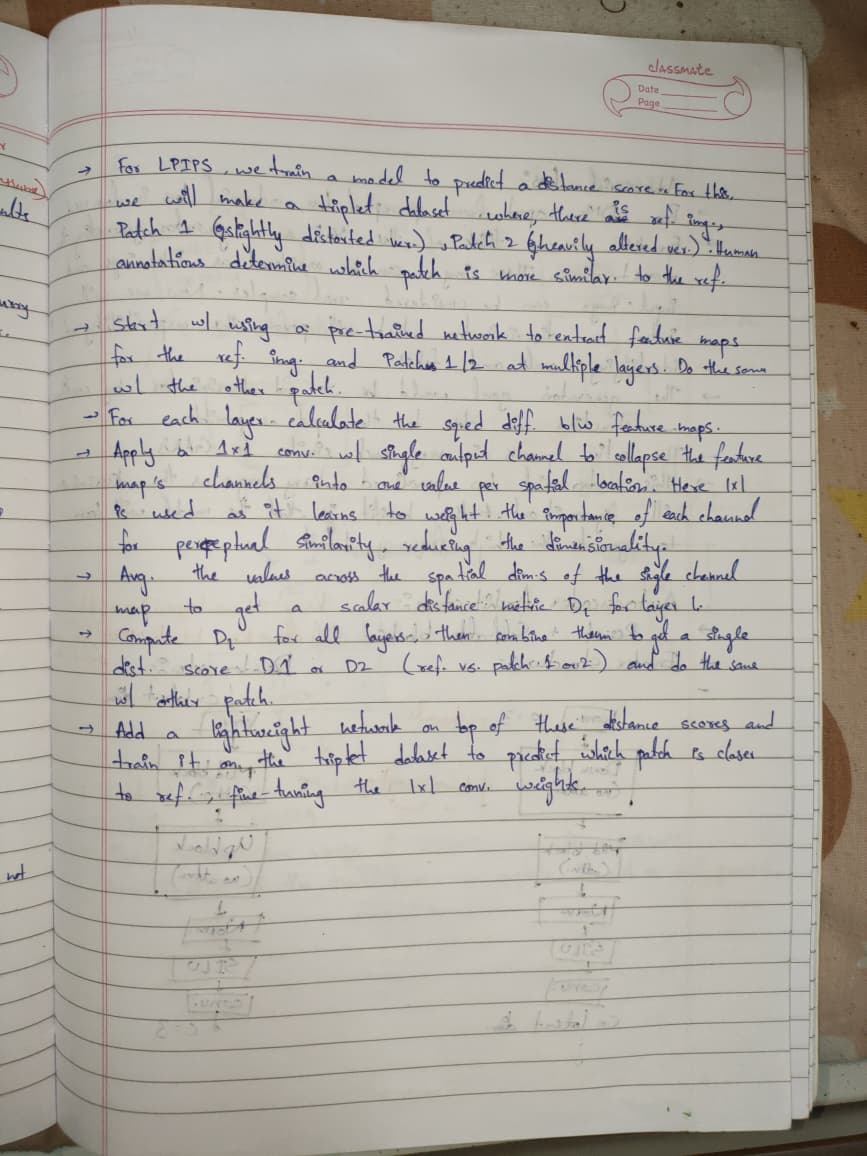 classmate
Date
Page
→ For LPIPS, we train a model to predict a distance score. For this,
we will make a triplet dataset where, there is ref. img.,
Patch 1 (slightly distorted ver.), Patch 2 (heavily altered ver.). Human
annotations determine which patch is more similar to the ref.
→ Start w/ using a pre-trained network to extract feature maps
for the ref. img. and Patches 1/2 at multiple layers. Do the same
w/ the other patch.
→ For each layer calculate the sq.ed diff. b/w feature maps.
→ Apply a 1x1 conv. w/ single output channel to collapse the feature
map's channels into one value per spatial location. Here 1x1
is used as it learns to weight the importance of each channel
for perceptual similarity, reducing the dimensionality.
→ Avg. the values across the spatial dim.s of the sigle channel
map to get a scalar distance metric Dₗ for layer l.
→ Compute Dₗ for all layers, then combine them to get a single
dist. score D1 or D2 (ref. vs. patch 1 or 2) and do the same
w/ other patch.
→ Add a lightweight network on top of these distance scores and
train it on the triplet dataset to predict which patch is closer
to ref., fine-tuning the 1x1 conv. weights.
not